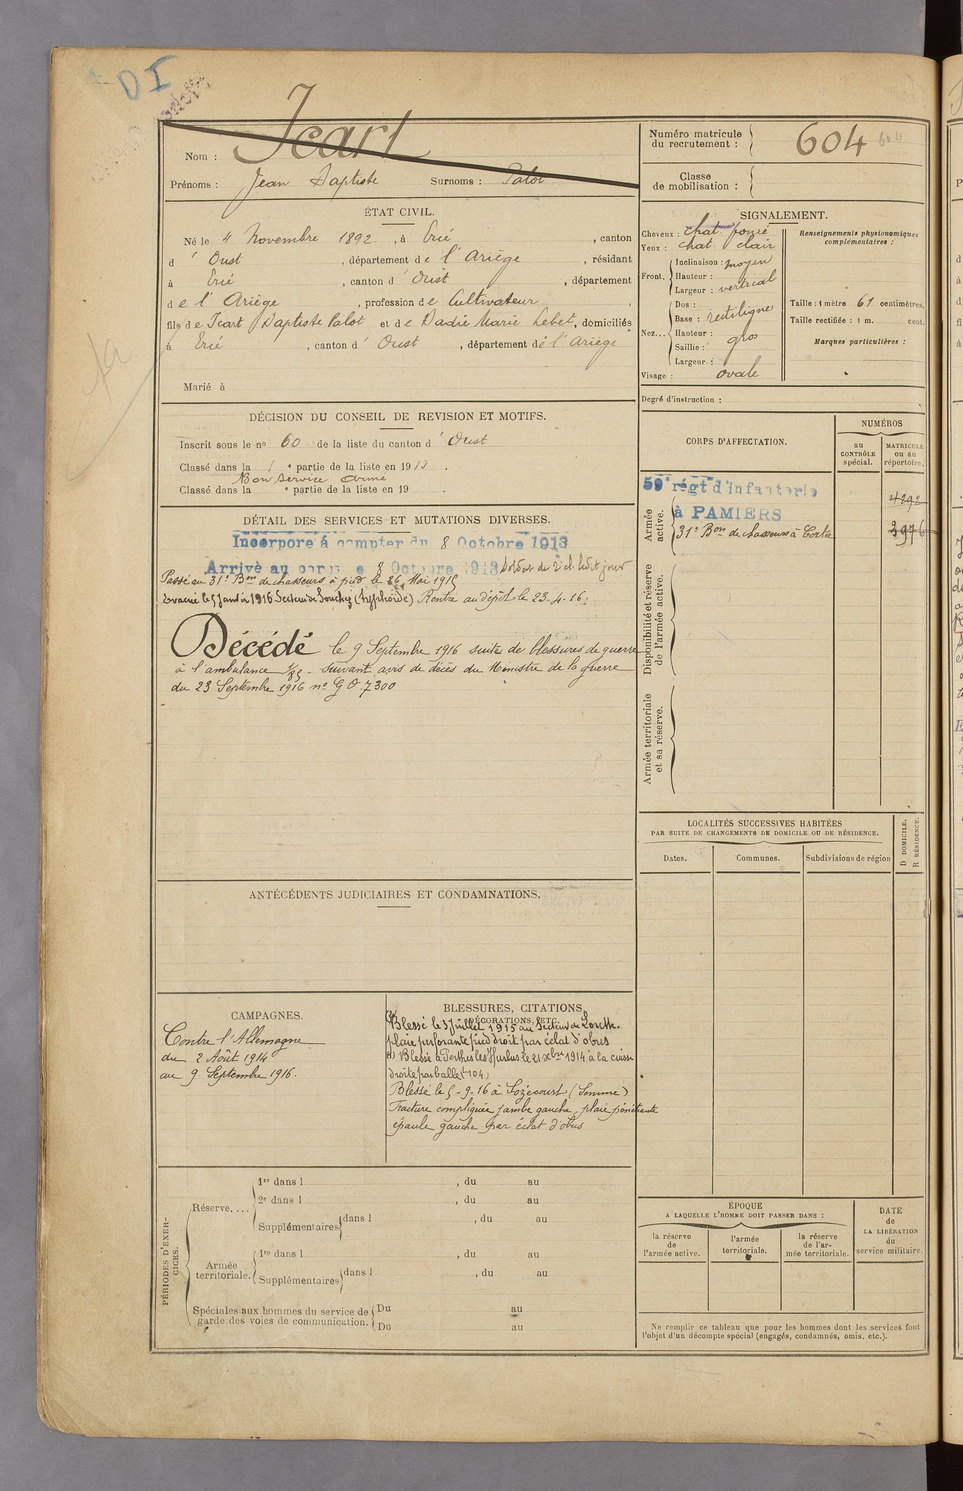 DI
Nom : Icart
Prénoms : Jean Baptiste Surnoms : Palot
Numéro matricule du recrutement : 604
604
Classe de mobilisation :
ÉTAT CIVIL.
Né le 4 Novembre 1892, à Ercé, canton
d'Oust, département de l'Ariège, résidant
à Ercé, canton d'Oust, département
de l'Ariège, profession de Cultivateur,
fils de Icart Baptiste Palot et de Dadié Marie Lebet, domiciliés
à Ercé, canton d'Oust, département de l'Ariège
Marié à
SIGNALEMENT.
Cheveux : chat. foncé
Yeux : chat. clair
Front. Inclinaison : moyen
Hauteur :
Largeur : vertical
Nez... Dos :
Base : rectiligne
Hauteur :
Saillie : gros
Largeur :
Visage : ovale
Renseignements physionomiques complémentaires :
Taille : 1 mètre 61 centimètres.
Taille rectifiée : 1 m. cent.
Marques particulières :
Degré d'instruction :
DÉCISION DU CONSEIL DE REVISION ET MOTIFS.
Inscrit sous le no 60 de la liste du canton d'Oust
Classé dans la 1 e partie de la liste en 1913.
Bon service armé
Classé dans la e partie de la liste en 19 .
CORPS D'AFFECTATION.
NUMÉROS
au CONTRÔLE spécial.
MATRICULE ou au répertoire.
Armée active.
59e régt d'infanterie
à PAMIERS
4292
31e Bon de chasseurs à Corte
3976
Disponibilité et réserve de l'armée active.
Armée territoriale et sa réserve.
DÉTAIL DES SERVICES ET MUTATIONS DIVERSES.
Incorporé à compter du 8 Octobre 1913
Arrivé au corps le 8 Octobre 1913 soldat de 2e cl. ledit jour
Passé au 31e Bon de chasseurs à pied le 26 Mai 1915
Evacué le 5 Janvier 1916 Secteur de Souchez (typhoïde) Rentré au dépôt le 23-4-16.
Décédé le 9 Septembre 1916 suite de blessures de guerre
à l'ambulance 1/85 - suivant avis de décès du Ministre de la guerre
du 23 Septembre 1916 no G O 7300
LOCALITÉS SUCCESSIVES HABITÉES
PAR SUITE DE CHANGEMENTS DE DOMICILE OU DE RÉSIDENCE.
Dates.
Communes.
Subdivisions de région
D DOMICILE.
R RÉSIDENCE.
ANTÉCÉDENTS JUDICIAIRES ET CONDAMNATIONS.
CAMPAGNES.
Contre l'Allemagne
du 2 Août 1914
au 9 Septembre 1916.
BLESSURES, CITATIONS, DÉCORATIONS, ETC.
Blessé le 3 Juillet 1915 au Secteur de Lorette.
plaie perforante pied droit par éclat d'obus
Blessé à Perthes les Hurlus le 21 Xbre 1914 à la cuisse
droite par balle
Blessé le 5-9-16 à (Somme)
Fracture compliquée jambe gauche, plaie pénétrante
épaule gauche par éclat d'obus
PÉRIODES D'EXERCICES.
Réserve....
1re dans l , du au
2e dans l , du au
Supplémentaires dans l , du au
Armée territoriale.
1re dans l , du au
Supplémentaires dans l , du au
Spéciales aux hommes du service de garde des voies de communication.
Du au
Du au
ÉPOQUE
A LAQUELLE L'HOMME DOIT PASSER DANS :
la réserve de l'armée active.
l'armée territoriale.
la réserve de l'armée territoriale.
DATE de LA LIBÉRATION du service militaire.
Ne remplir ce tableau que pour les hommes dont les services font
l'objet d'un décompte spécial (engagés, condamnés, omis, etc.).